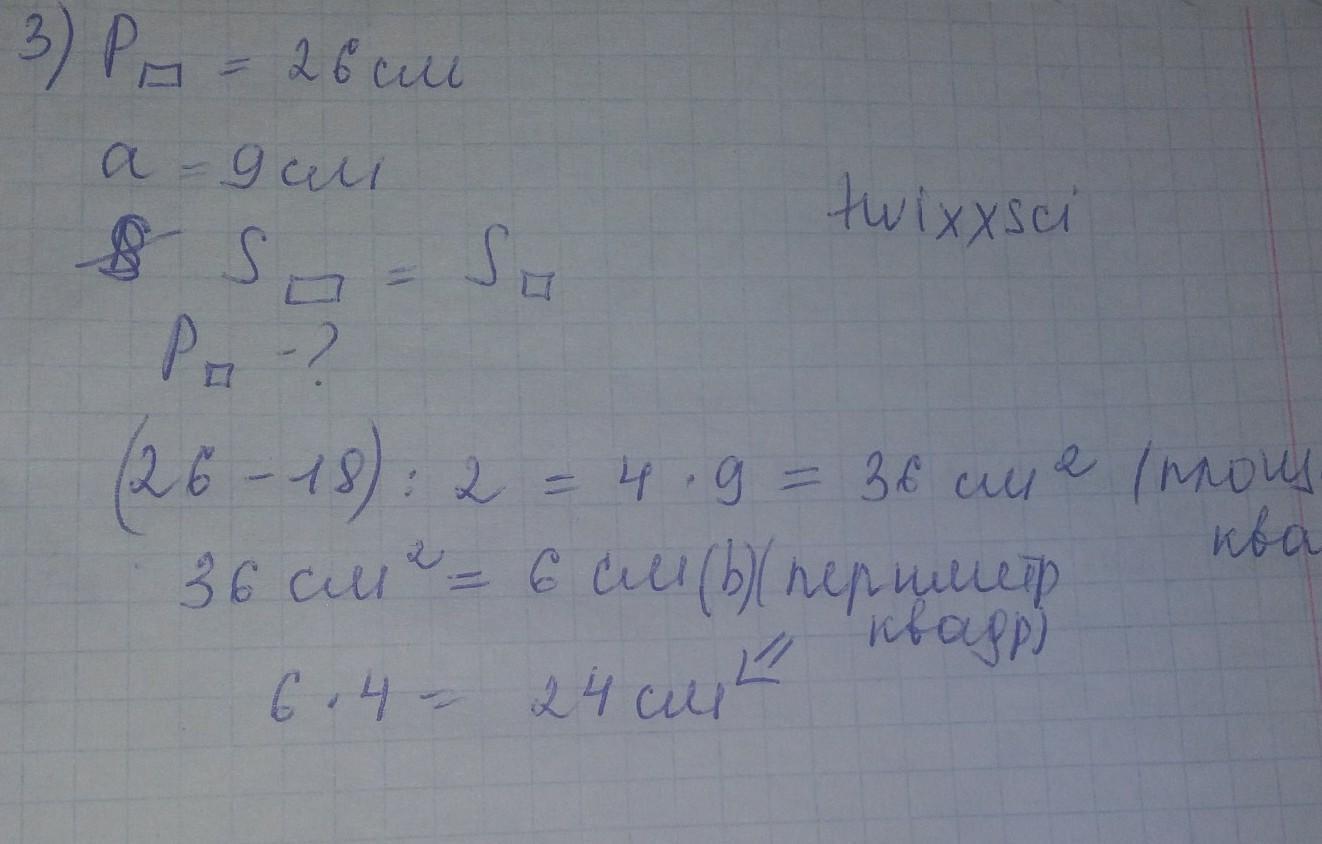 3) P▭ = 26 см
a - 9 см
twixxsci
S▭ = S□
P□ - ?
(26 - 18) : 2 = 4 · 9 = 36 см² (площ
ква
36 см² = 6 см (b) (периметр
квадр)
6 · 4 = 24 см